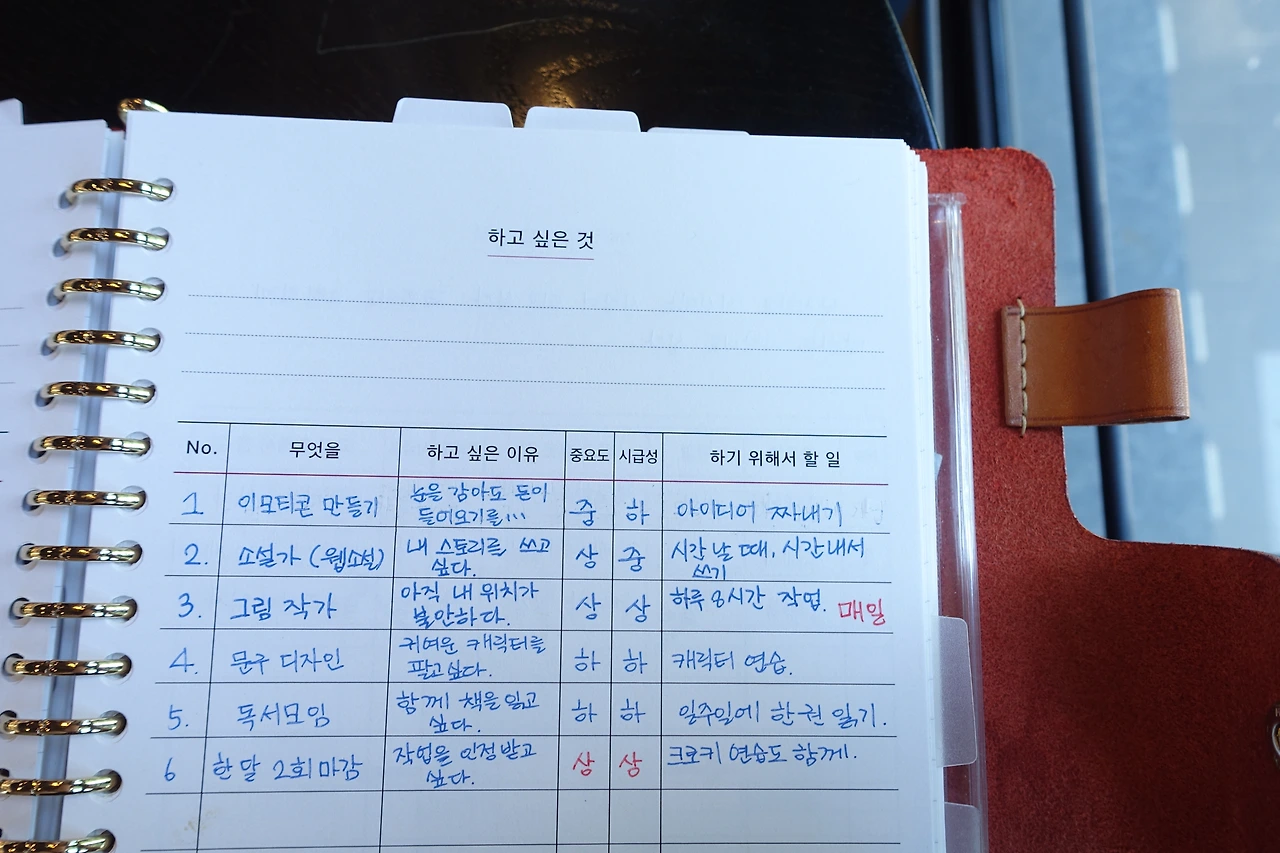 하고 싶은 것
No. 무엇을 하고 싶은 이유 중요도 시급성 하기 위해서 할 일
1 이모티콘 만들기 눈을 감아도 돈이 들어오기를... 중 하 아이디어 짜내기
2. 소설가 (웹소설) 내 스토리를 쓰고 싶다. 상 중 시간 날 때, 시간내서 쓰기
3. 그림 작가 아직 내 위치가 불안하다. 상 상 하루 8시간 작업. 매일
4. 문구 디자인 귀여운 캐릭터를 팔고싶다. 하 하 캐릭터 연습.
5. 독서모임 함께 책을 읽고 싶다. 하 하 일주일에 한권 읽기.
6 한달 2회 마감 작업을 인정받고 싶다. 상 상 크로키 연습도 함께.